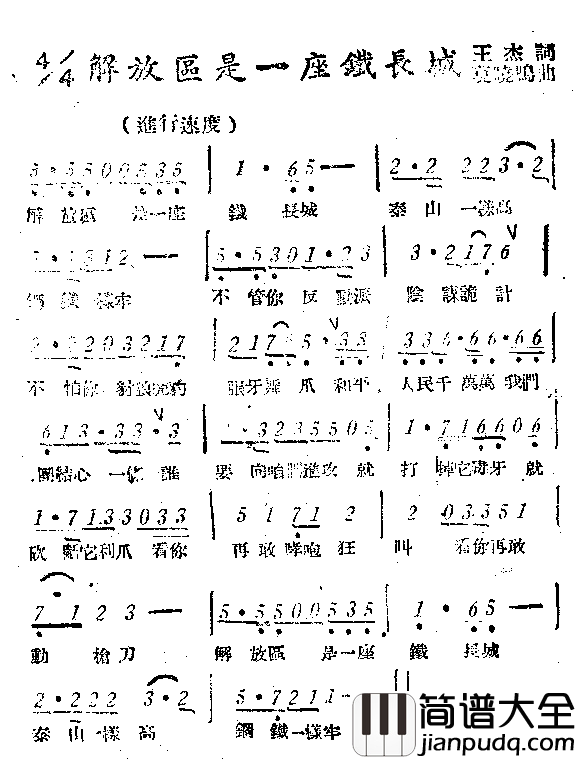 4/4 解放區是一座鐵長城 王杰詞
曉鳴曲
（進行速度）
5·5500535 | 1·65— | 2·2 223·2 |
解放區 是一座 鐵 長城 泰山一樣高
1·1312— | 5·5301·23 | 3·2176 V
鐵樣牢 不管你反動派 陰謀詭計
2·2203217 | 2175·33 | 336·66·66 |
不怕你豺狼虎豹 張牙舞爪和平 人民千萬萬我們
613·33·3 | 3·3235505 | 1·716606 |
團結心一條誰 要向咱們進攻就 打掉它毒牙就
1·7133033 | 51712 | 203351 |
砍斷它利爪看你 再敢咆狂 叫 看你再敢
7123— | 5·5500535 | 1·65— |
動槍刀 解放區 是一座 鐵 長城
2·2223·2 | 5·7211- ||
泰山一樣高 鋼鐵一樣牢
简谱大全
jianpudq.com